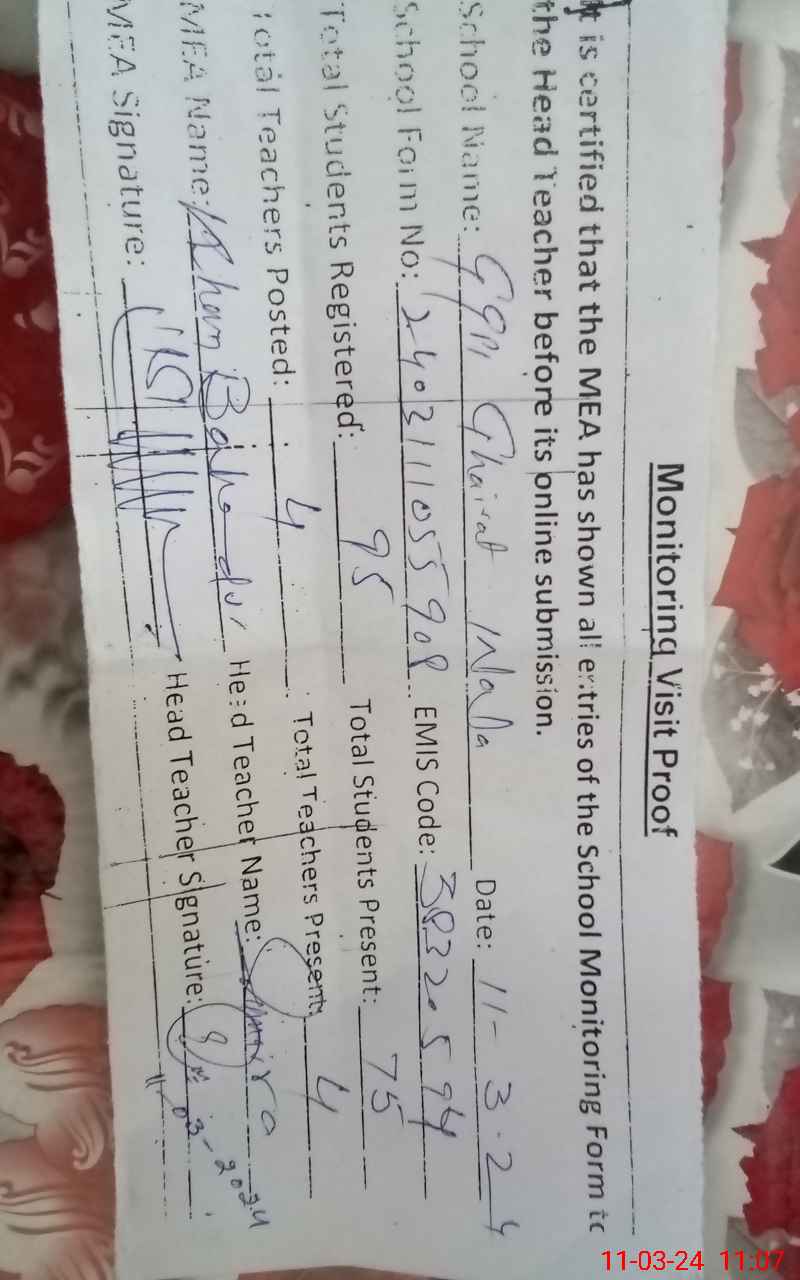 Monitoring Visit Proof
It is certified that the MEA has shown all entries of the School Monitoring Form to
the Head Teacher before its online submission.
School Name: Date: 11-3.24
School Form No: EMIS Code: 38320594
Total Students Registered: 95 Total Students Present: 75
Total Teachers Posted: 4 Total Teachers Present: 4
MEA Name: Khan Bahadur Head Teacher Name:
MEA Signature: Head Teacher Signature:
11-03-2024
11-03-24 11:07